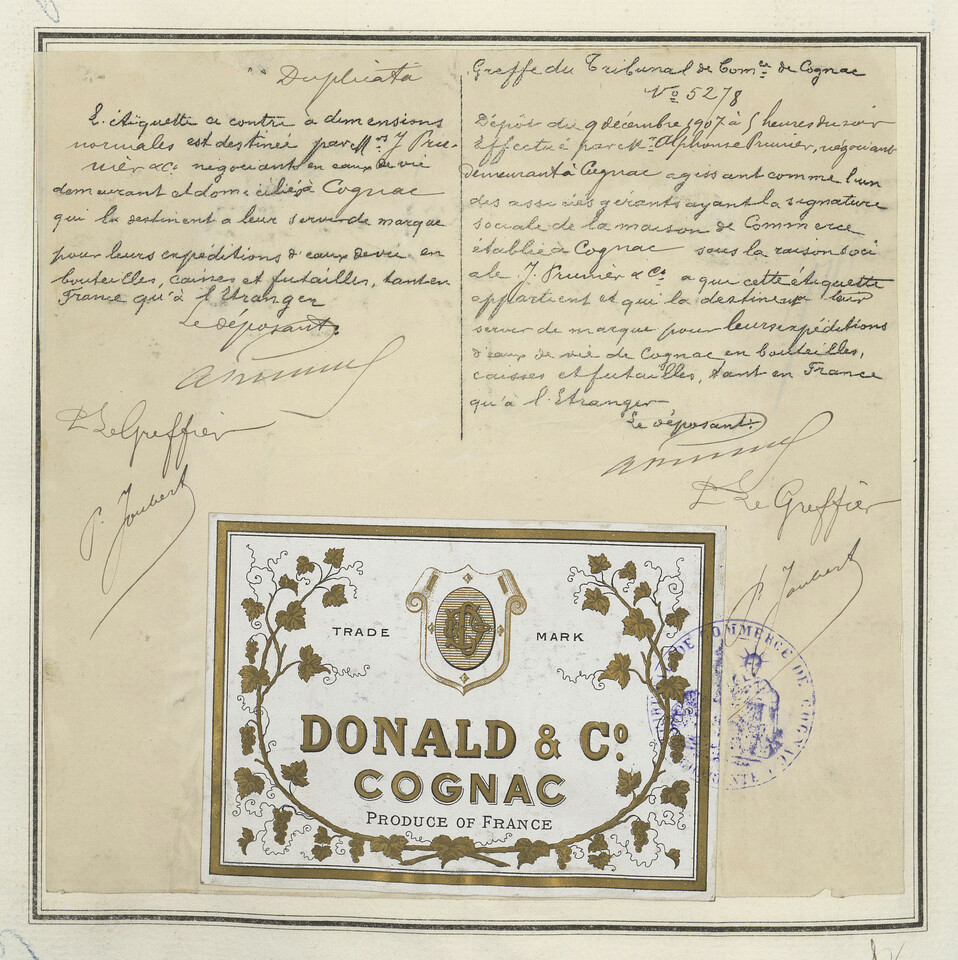 Duplicata
L'étiquette ci contre à dimensions
normales est destinée par Mrs J Pru-
nier & Co négociants en eaux de vie
demeurant et domiciliés à Cognac
qui la destinent a leur servir de marque
pour leurs expéditions d'eaux de vie en
bouteilles, caisses et futailles, tant en
France qu'à l'Etranger
Le déposant.
P Le Greffier
P. Joubert
Greffe du Tribunal de Comce de Cognac
No 5278
Dépôt du 9 décembre 1907 à 5 heures du soir
Effectué par Mr Alphonse Prunier, négociant
demeurant à Cognac agissant comme l'un
des associés gérants ayant la signature
sociale de la maison de Commerce
établie à Cognac sous la raison soci
ale J. Prunier & Co. a que cette étiquette
appartient et qui la destinent leur
servir de marque pour leurs expéditions
d'eaux de vie de Cognac en bouteilles,
caisses et futailles, tant en France
qu'à l'Etranger
Le déposant.
P Le Greffier
P. Joubert
TRADE MARK
DONALD & Co.
COGNAC
PRODUCE OF FRANCE
DE COMMERCE DE COGNAC